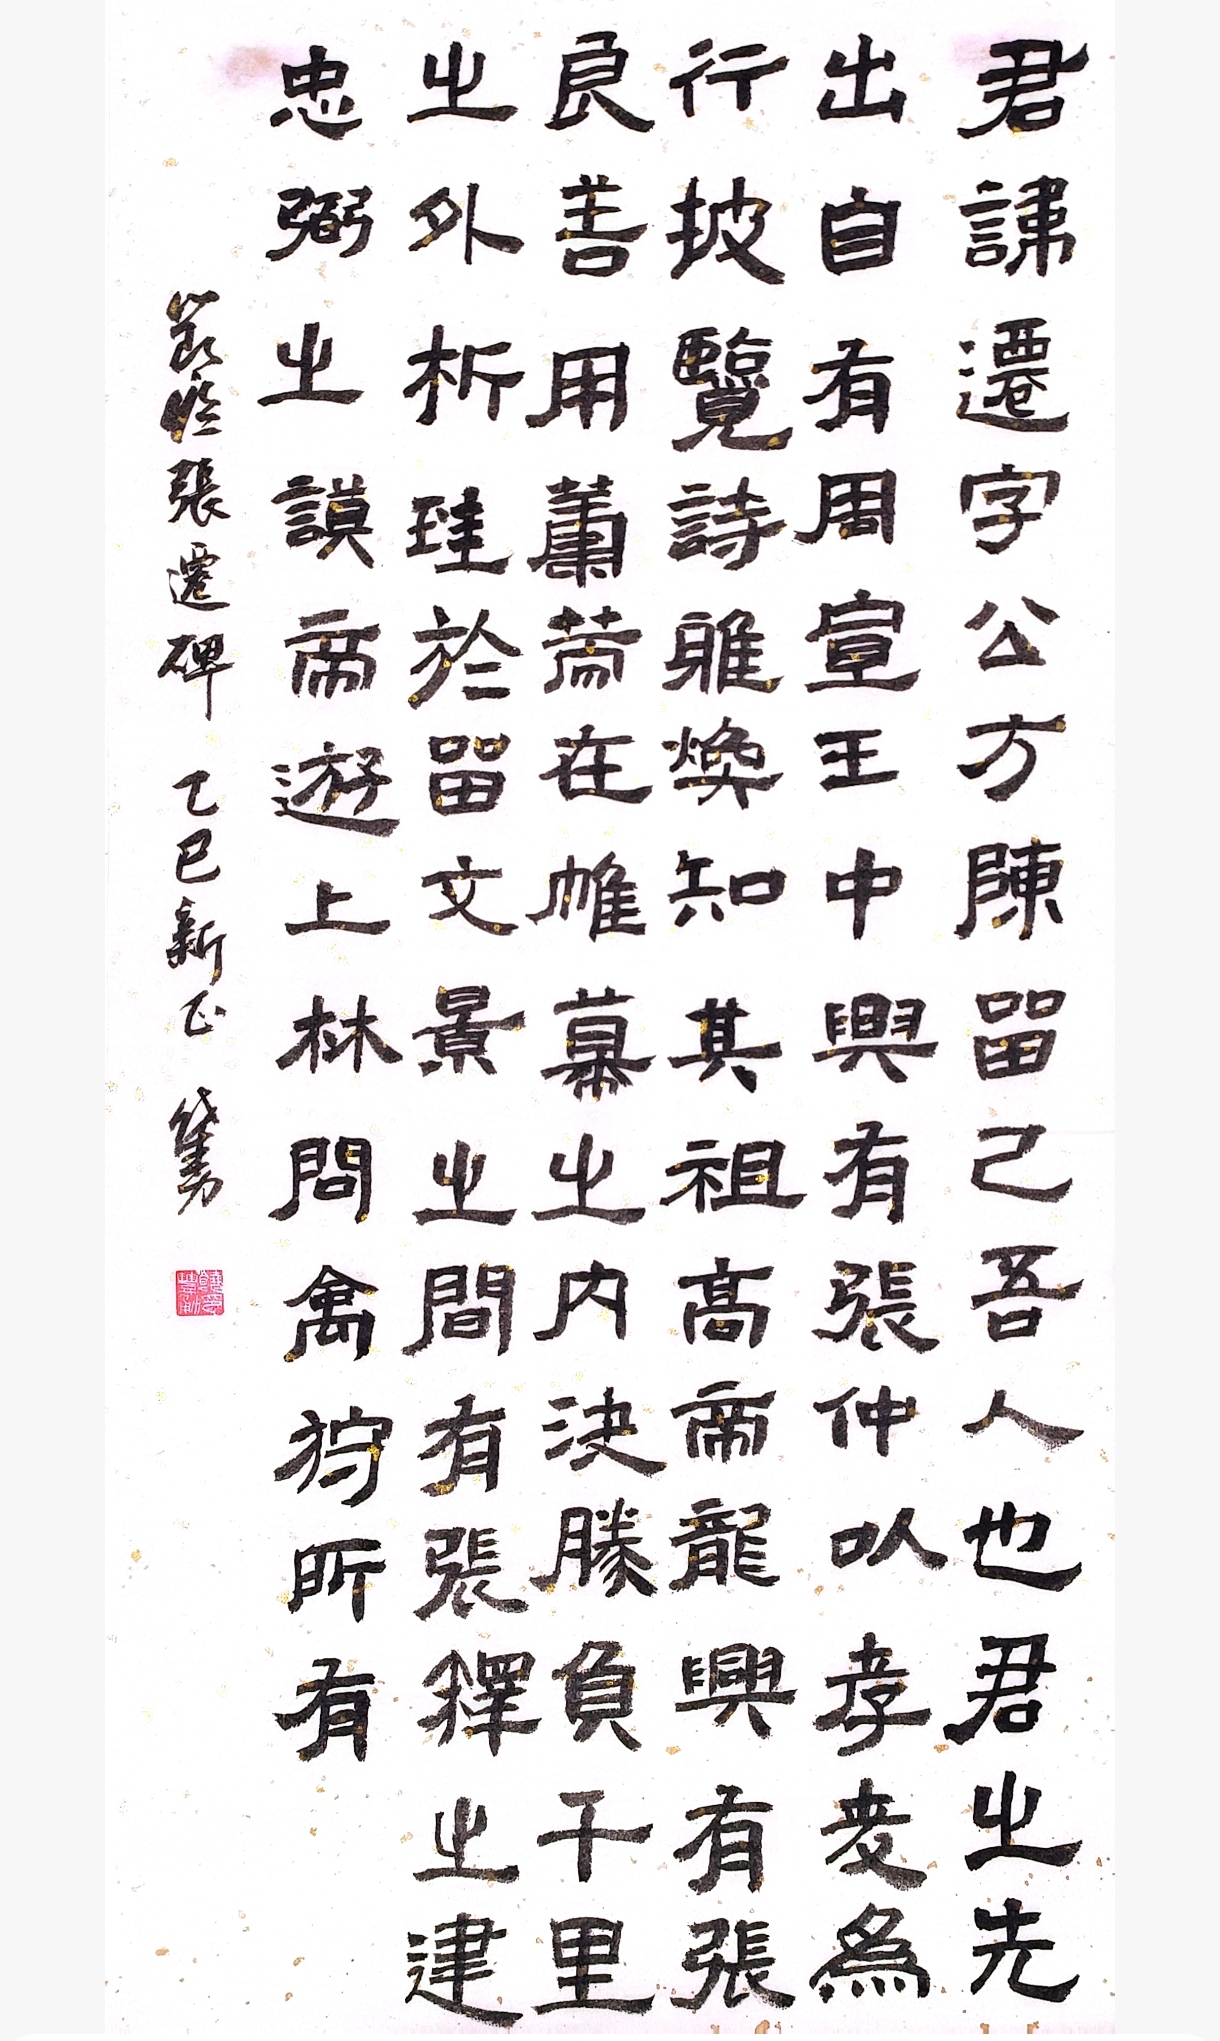 君諱遷字公方陳留己吾人也君之先
出自有周宣王中興有張仲以孝友為
行披覽詩雅煥知其祖高帝龍興有張
良善用蕭䓑在帷幕之內決勝負千里
之外析珪於留文景之間有張釋之建
忠弼之謨帝遊上林問禽狩所有
節臨張遷碑 乙巳新正